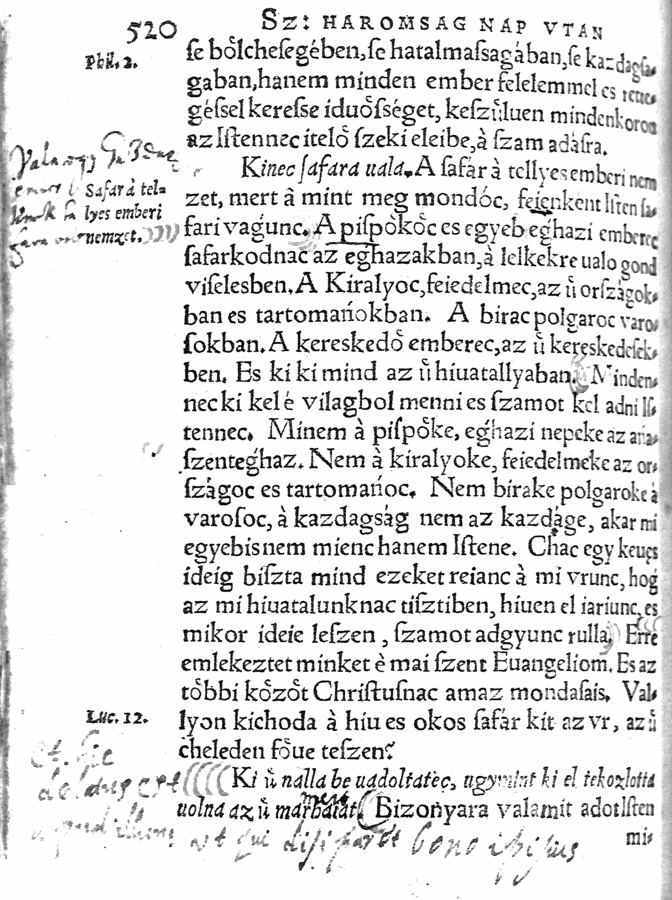 520
SZ: HAROMSAG NAP VTAN
Phil. 2.
ſe bo̊lcheſegében, ſe hatalmaſſagában, ſe kazdagſa-
gaban, hanem minden ember felelemmel es rette-
géſſel kereſſe iduo̊ſſéget, keſzůluen mindenkoron
az Iſtennec itelo̊ ſzeki eleibe, à ſzam adáſra.
Kinec ſafara uala. A ſafár à tellyes emberi nem
zet, mert à mint meg mondóc, feienkent Iſten ſa-
fari vagńunc. A piſpo̊ko̊c es egyeb eghazi emberec
ſafarkodnac az eghazakban, à lelkekre ualo gond
viſelesben. A Kiralyoc, feiedelmec, az ů orſzágok-
ban es tartomańokban. A birac polgaroc varo-
ſokban. A kereskedo̊ emberec, az ů kereskedeſek-
ben. Es ki ki mind az ů hiuatallyaban. Minden-
nec ki kel è vilagbol menni es ſzamot kel adni Iſ-
tennec. Minem à piſpo̊ke, eghazi nepeke az ańa-
ſzenteghaz. Nem à kiralyoke, feiedelmeke az or-
ſzágoc es tartomańoc. Nem birake polgaroke à
varoſoc, à kazdagság nem az kazdage, akar mi
egyebis nem mienc hanem Iſtene. Chac egy keues
ideig biſzta mind ezeket reianc à mi vrunc, hog
az mi hiuatalunknac tiſztiben, hiuen el iariunc, es
mikor ideie leſzen, ſzamot adgyunc rulla. Erre
emlekeztet minket è mai ſzent Euangeliom. Es az
to̊bbi ko̊zo̊t Chriſtuſnac amaz mondaſais. Val-
lyon kichoda à hiu es okos ſafár kit az vr, az ů
cheleden fo̊ue teſzen?
Ki ů nalla be uadoltatec, ugymint ki el tekozlotta
uolna az ů marhaiat. Bizonyara valamit adot Iſten
mi-
Safar à tel-
lyes emberi
nemzet.
Luc. 12.